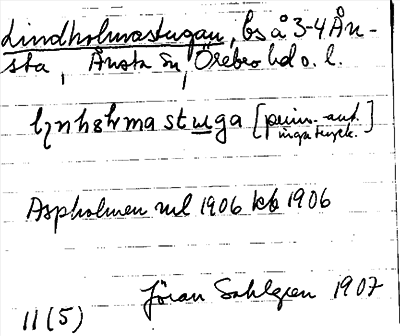 Lindholmastugan, bs å 3-4 Ån-
sta, Ånsta sn, Örebro hd o. l.
lynhshma stuga [prim.-ant.
inga tryck.]
Aspholmen ml 1906 kb 1906
Jöran Sahlgren 1907
11(5)